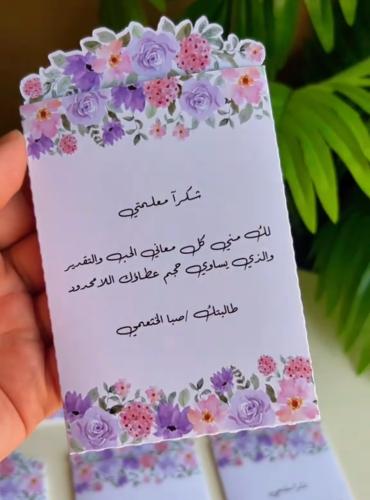 شكراً معلمتي
لكِ مني كل معاني الحب والتقدير
والذي يساوي حجم عطاؤك اللامحدود
طالبتك /صبا الخثعمي